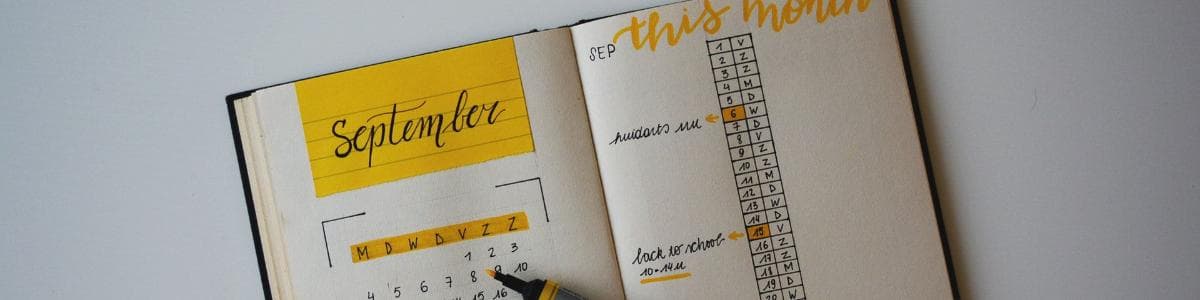 September
M D W D V Z Z
1 2 3
4 5 6 7 8 9 10
15 16
SEP this month
1 V
2 Z
3 Z
4 M
5 D
huidarts
6 W
7 D
8 V
9 Z
10 Z
11 M
12 D
13 W
14 D
back to school
10-14u
15 V
16 Z
17 Z
18 M
19 D
20 W